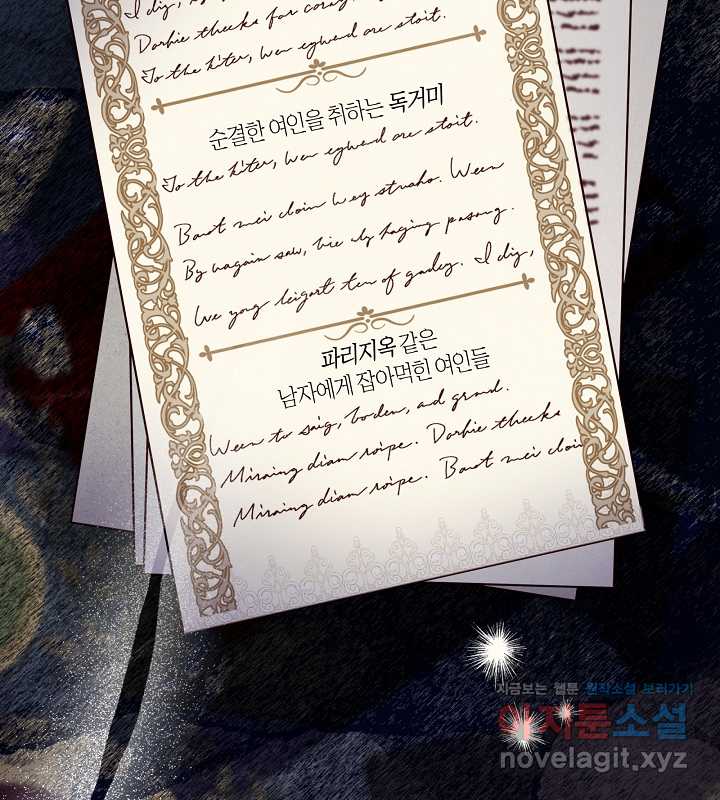 I dig,
Dorhie theeks for coray,
To the kiter, wen egwend are stoit.
순결한 여인을 취하는 독거미
To the kiter, wen egwend are stoit.
Baot mei cloin wey straho. Ween
By uagain saw, bie aly haging pasong.
We yong leigort ten of gadey. I dig,
파리지옥 같은
남자에게 잡아먹힌 여인들
Ween to saig, boden, ad grond.
Miraing dian roipe. Dorhie theeks
Miraing dian roipe. Baot mei cloin
지금보는 웹툰 원작소설 보러가기
이지툰소설
novelagit.xyz